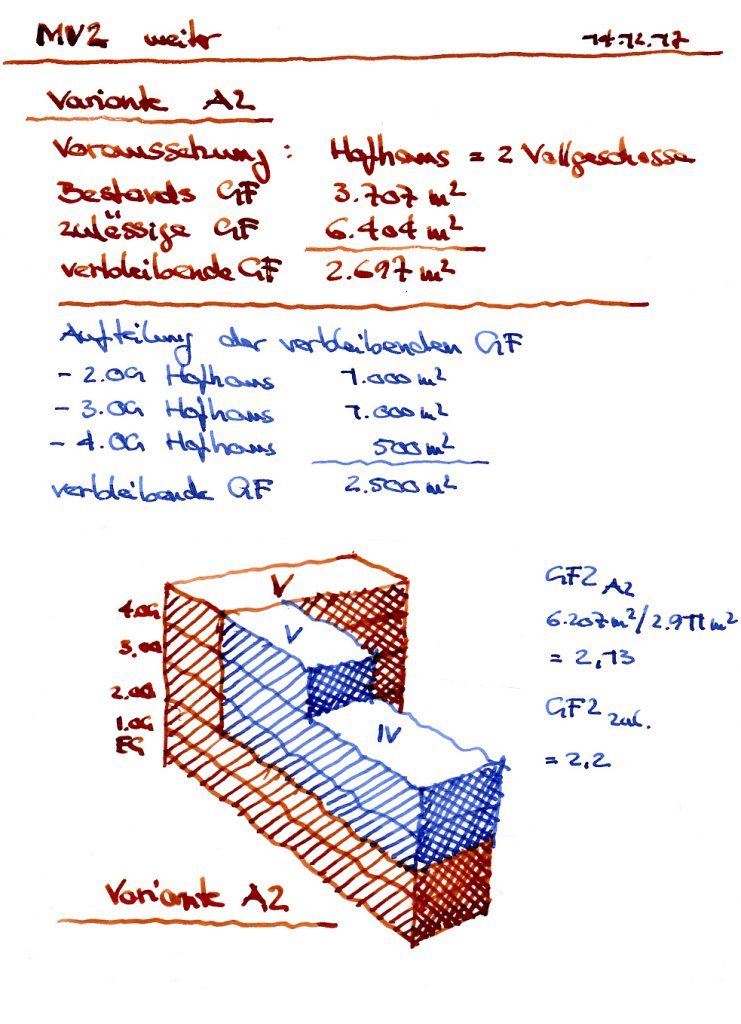 MV2 weiter 14.12.17
Variante A2
Voraussetzung: Hofhaus = 2 Vollgeschosse
Bestands GF 3.707 m²
zulässige GF 6.404 m²
verbleibende GF 2.697 m²
Aufteilung der verbleibenden GF
- 2.OG Hofhaus 1.000 m²
- 3.OG Hofhaus 1.000 m²
- 4.OG Hofhaus 500 m²
verbleibende GF 2.500 m²
V
4.OG
V
3.OG
2.OG
1.OG
EG
IV
GFZ A2
6.207 m² / 2.911 m²
= 2,13
GFZ zul.
= 2,2
Variante A2